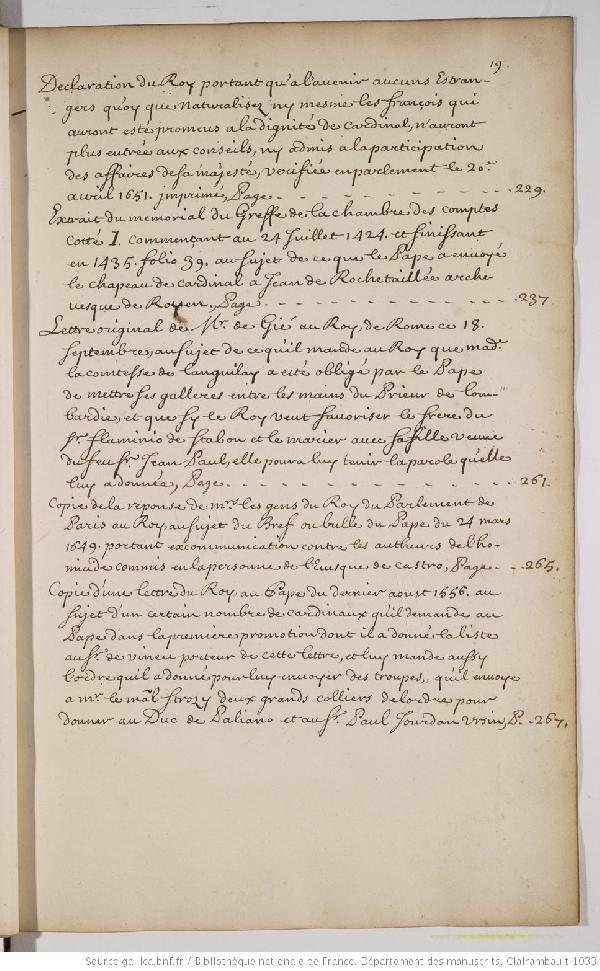 19.
Declaration du Roy portant qu'a l'avenir aucuns Estran-
gers quoy que Naturalisez ny mesme les françois qui
auront esté promeus a la dignité de Cardinal, n'auront
plus entrée aux conseils, ny admis a la participation
des affaires de sa majesté, verifiée en parlement le 20.e
avril 1651. imprimé, Page - - - - - - - - - 229.
Extrait du memorial du Greffe de la chambre des comptes
cotté I. commençant au 24 Juillet 1424. et finissant
en 1435. folio 39. au sujet de ce que le Pape a envoyé
le chapeau de cardinal a Jean de Rochetaillée arche
vesque de Rouen, Page - - - - - - - - - 237.
Lettre original de Mr. de Gié au Roy, de Rome ce 18.
septembre, au sujet de ce qu'il mande au Roy que mad.e
la comtesse de languilas a esté obligé par le Pape
de mettre ses galleres entre les mains du Prieur de lom-
bardie, et que sy le Roy veut favoriser le frere du
sr. fluminio de stabon et le marier avec sa fille veuve
du feu sr. Jean Paul, elle poura luy tenir la parole qu'elle
luy a donnée, Page - - - - - - - - - 261.
Copie de la reponse de mrs. les gens du Roy du Parlement de
Paris au Roy, au sujet du Bref ou bulle du Pape du 24 mars
1649. portant excommunication contre les autheurs de l'ho-
micide commis en la personne de l'Evesque de Castro, Page - - 265.
Copie d'une lettre du Roy au Pape du dernier aoust 1556. au
sujet d'un certain nombre de cardinaux qu'il demande au
Pape dans la premiere promotion dont il a donné la liste
au sr. de vineu porteur de cette lettre, et luy mande aussy
l'ordre qu'il a donné pour luy envoyer des troupes, qu'il envoye
a mr. le mal. Strozy deux grands colliers de lordre pour
donner au Duc de Paliano et au sr. Paul Jourdan Ursin, P. - 267.
Source gallica.bnf.fr / Bibliothèque nationale de France. Département des manuscrits. Clairambault 1033